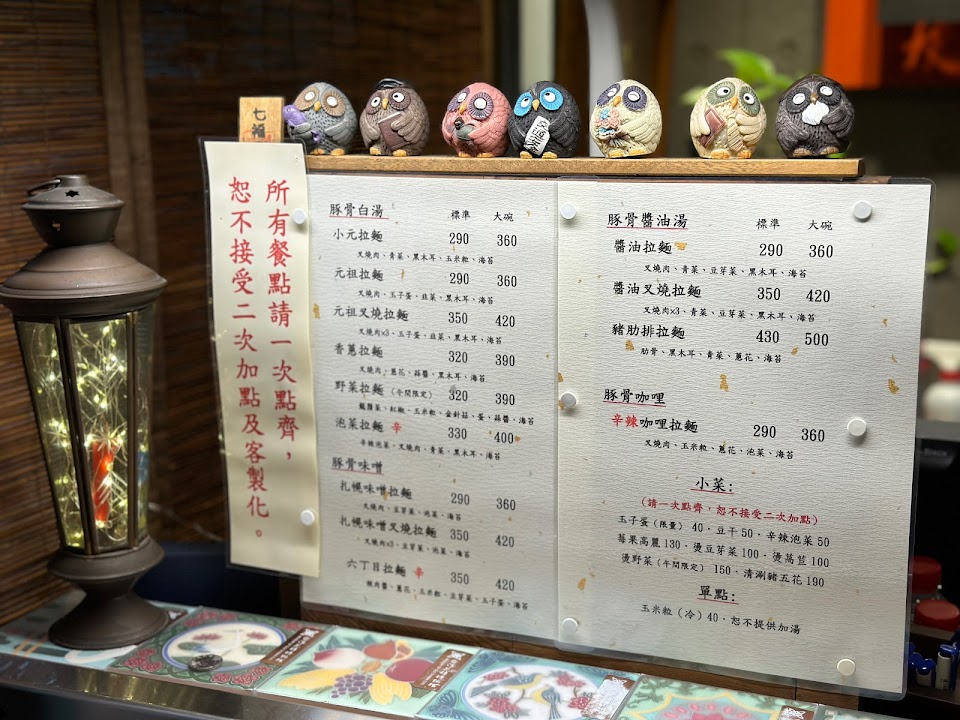 七福
所有餐點請一次點齊，
恕不接受二次加點及客製化。
豚骨白湯 標準 大碗
小元拉麵 290 360
叉燒肉、青菜、黑木耳、玉米粒、海苔
元祖拉麵 290 360
叉燒肉、玉子蛋、韭菜、黑木耳、海苔
元祖叉燒拉麵 350 420
叉燒肉x3、玉子蛋、韭菜、黑木耳、海苔
香蔥拉麵 320 390
叉燒肉、蔥花、蒜醬、黑木耳、海苔
野菜拉麵 (午間限定) 320 390
龍鬚菜、紅椒、玉米粒、金針菇、蛋、蒜醬、海苔
泡菜拉麵 辛 330 400
辛辣泡菜、叉燒肉、青菜、黑木耳、海苔
豚骨味噌
札幌味噌拉麵 290 360
叉燒肉、豆芽菜、泡菜、海苔
札幌味噌叉燒拉麵 350 420
叉燒肉x3、豆芽菜、泡菜、海苔
六丁目拉麵 辛 350 420
辣肉醬、蔥花、玉米粒、豆芽菜、玉子蛋、海苔
豚骨醬油湯 標準 大碗
醬油拉麵 290 360
叉燒肉、青菜、豆芽菜、黑木耳、海苔
醬油叉燒拉麵 350 420
叉燒肉x3、青菜、豆芽菜、黑木耳、海苔
豬肋排拉麵 430 500
肋骨、黑木耳、青菜、蔥花、海苔
豚骨咖哩
辛辣咖哩拉麵 290 360
叉燒肉、玉米粒、蔥花、泡菜、海苔
小菜:
(請一次點齊，恕不接受二次加點)
玉子蛋 (限量) 40．豆干 50．辛辣泡菜 50
莓果高麗 130．燙豆芽菜 100．燙萵苣 100
燙野菜 (午間限定) 150．清涮豬五花 190
單點:
玉米粒 (冷) 40．恕不提供加湯